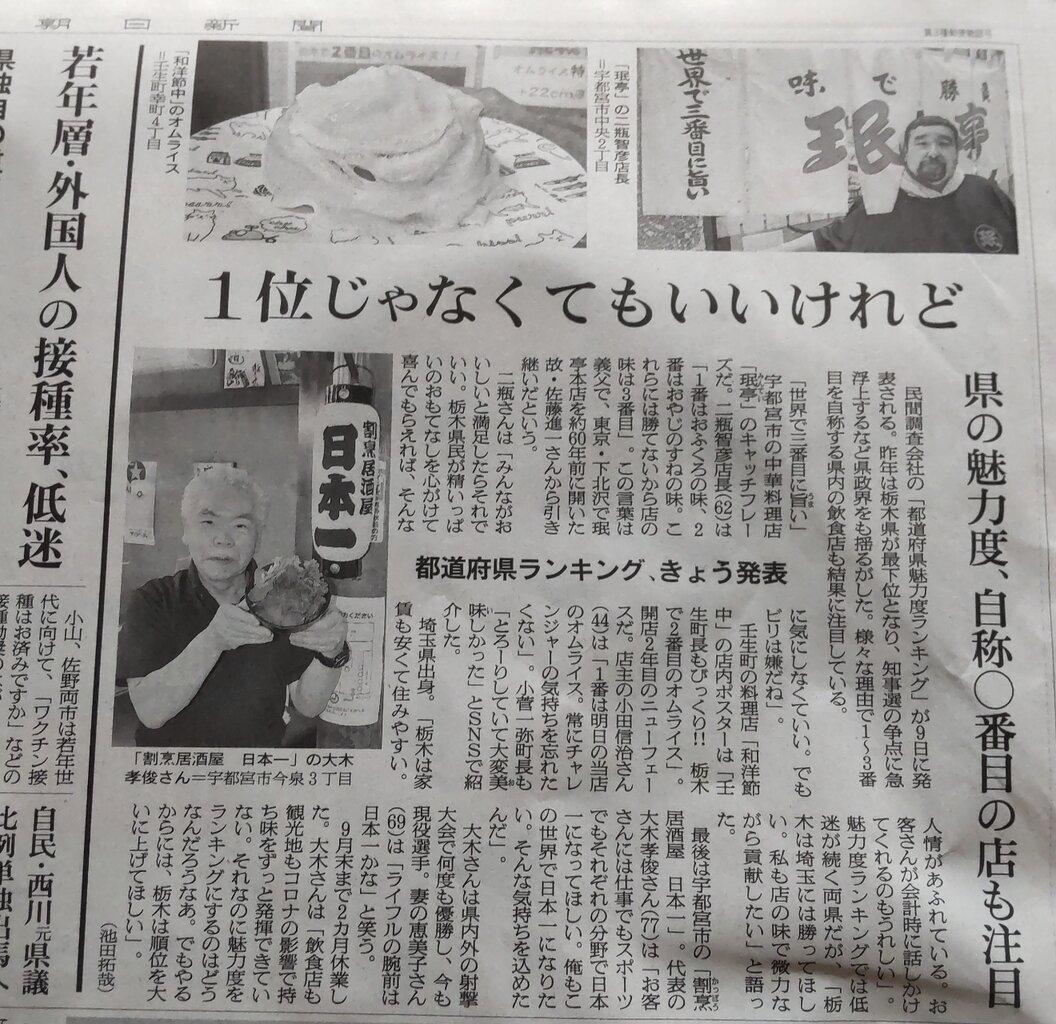 朝日新聞
１位じゃなくてもいいけれど
県の魅力度、自称〇番目の店も注目
都道府県ランキング、きょう発表
民間調査会社の「都道府県魅力度ランキング」が９日に発
表される。昨年は栃木県が最下位となり、知事選の争点に急
浮上するなど県政界をも揺るがした。様々な理由で１～３番
目を自称する県内の飲食店も結果に注目している。
「世界で三番目に旨い」
宇都宮市の中華料理店
「珉亭」のキャッチフレー
ズだ。二瓶智彦店長（６２）は
「１番はおふくろの味、２
番はおやじのすねの味。こ
れらには勝てないから店の
味は３番目」。この言葉は
義父で、東京・下北沢で珉
亭本店を約６０年前に開いた
故・佐藤進一さんから引き
継いだという。
二瓶さんは「みんながお
いしいと満足したらそれで
いい。栃木県民が精いっぱ
いのおもてなしを心がけて
喜んでもらえれば、そんな
に気にしなくていい。でも
ビリは嫌だね」。
壬生町の料理店「和洋節
中」の店内ポスターは「壬
生町長もびっくり！！　栃木
で２番目のオムライス」。
開店２年目のニューフェー
スだ。店主の小田信治さん
（４４）は「１番は明日の当店
のオムライス。常にチャレ
ンジャーの気持ちを忘れた
くない」。小菅一弥町長も
「とろーりしていて大変美
味しかった」とＳＮＳで紹
介した。
埼玉県出身。「栃木は家
賃も安くて住みやすい。
人情があふれている。お
客さんが会計時に話しかけ
てくれるのもうれしい」。
魅力度ランキングでは低
迷が続く両県だが、「栃
木は埼玉には勝ってほし
い。私も店の味で微力な
がら貢献したい」と語っ
た。
最後は宇都宮市の「割烹
居酒屋　日本一」。代表の
大木孝俊さん（７７）は「お客
さんには仕事でもスポーツ
でもそれぞれの分野で日本
一になってほしい。俺もこ
の世界で日本一になりた
い。そんな気持ちを込めた
んだ」。
大木さんは県内外の射撃
大会で何度も優勝し、今も
現役選手。妻の恵美子さん
（６９）は「ライフルの腕前は
日本一かな」と笑う。
９月末まで２カ月休業し
た。大木さんは「飲食店も
観光地もコロナの影響で持
ち味をずっと発揮できてい
ない。それなのに魅力度を
ランキングにするのはどう
なんだろうなあ。でもやる
からには、栃木は順位を大
いに上げてほしい」。
（池田拓哉）
「和洋節中」のオムライス
＝壬生町幸町４丁目
２番目のオムライス！！
オムライス特
22cm
「珉亭」の二瓶智彦店長
＝宇都宮市中央２丁目
世界で三番目に旨い
味で勝
珉亭
割烹居酒屋
日本一
「割烹居酒屋　日本一」の大木
孝俊さん＝宇都宮市今泉３丁目
若年層・外国人の接種率、低迷
県独自の
小山、佐野両市は若年世
代に向けて、「ワクチン接
種はお済みですか」などの
自民・西川元県議